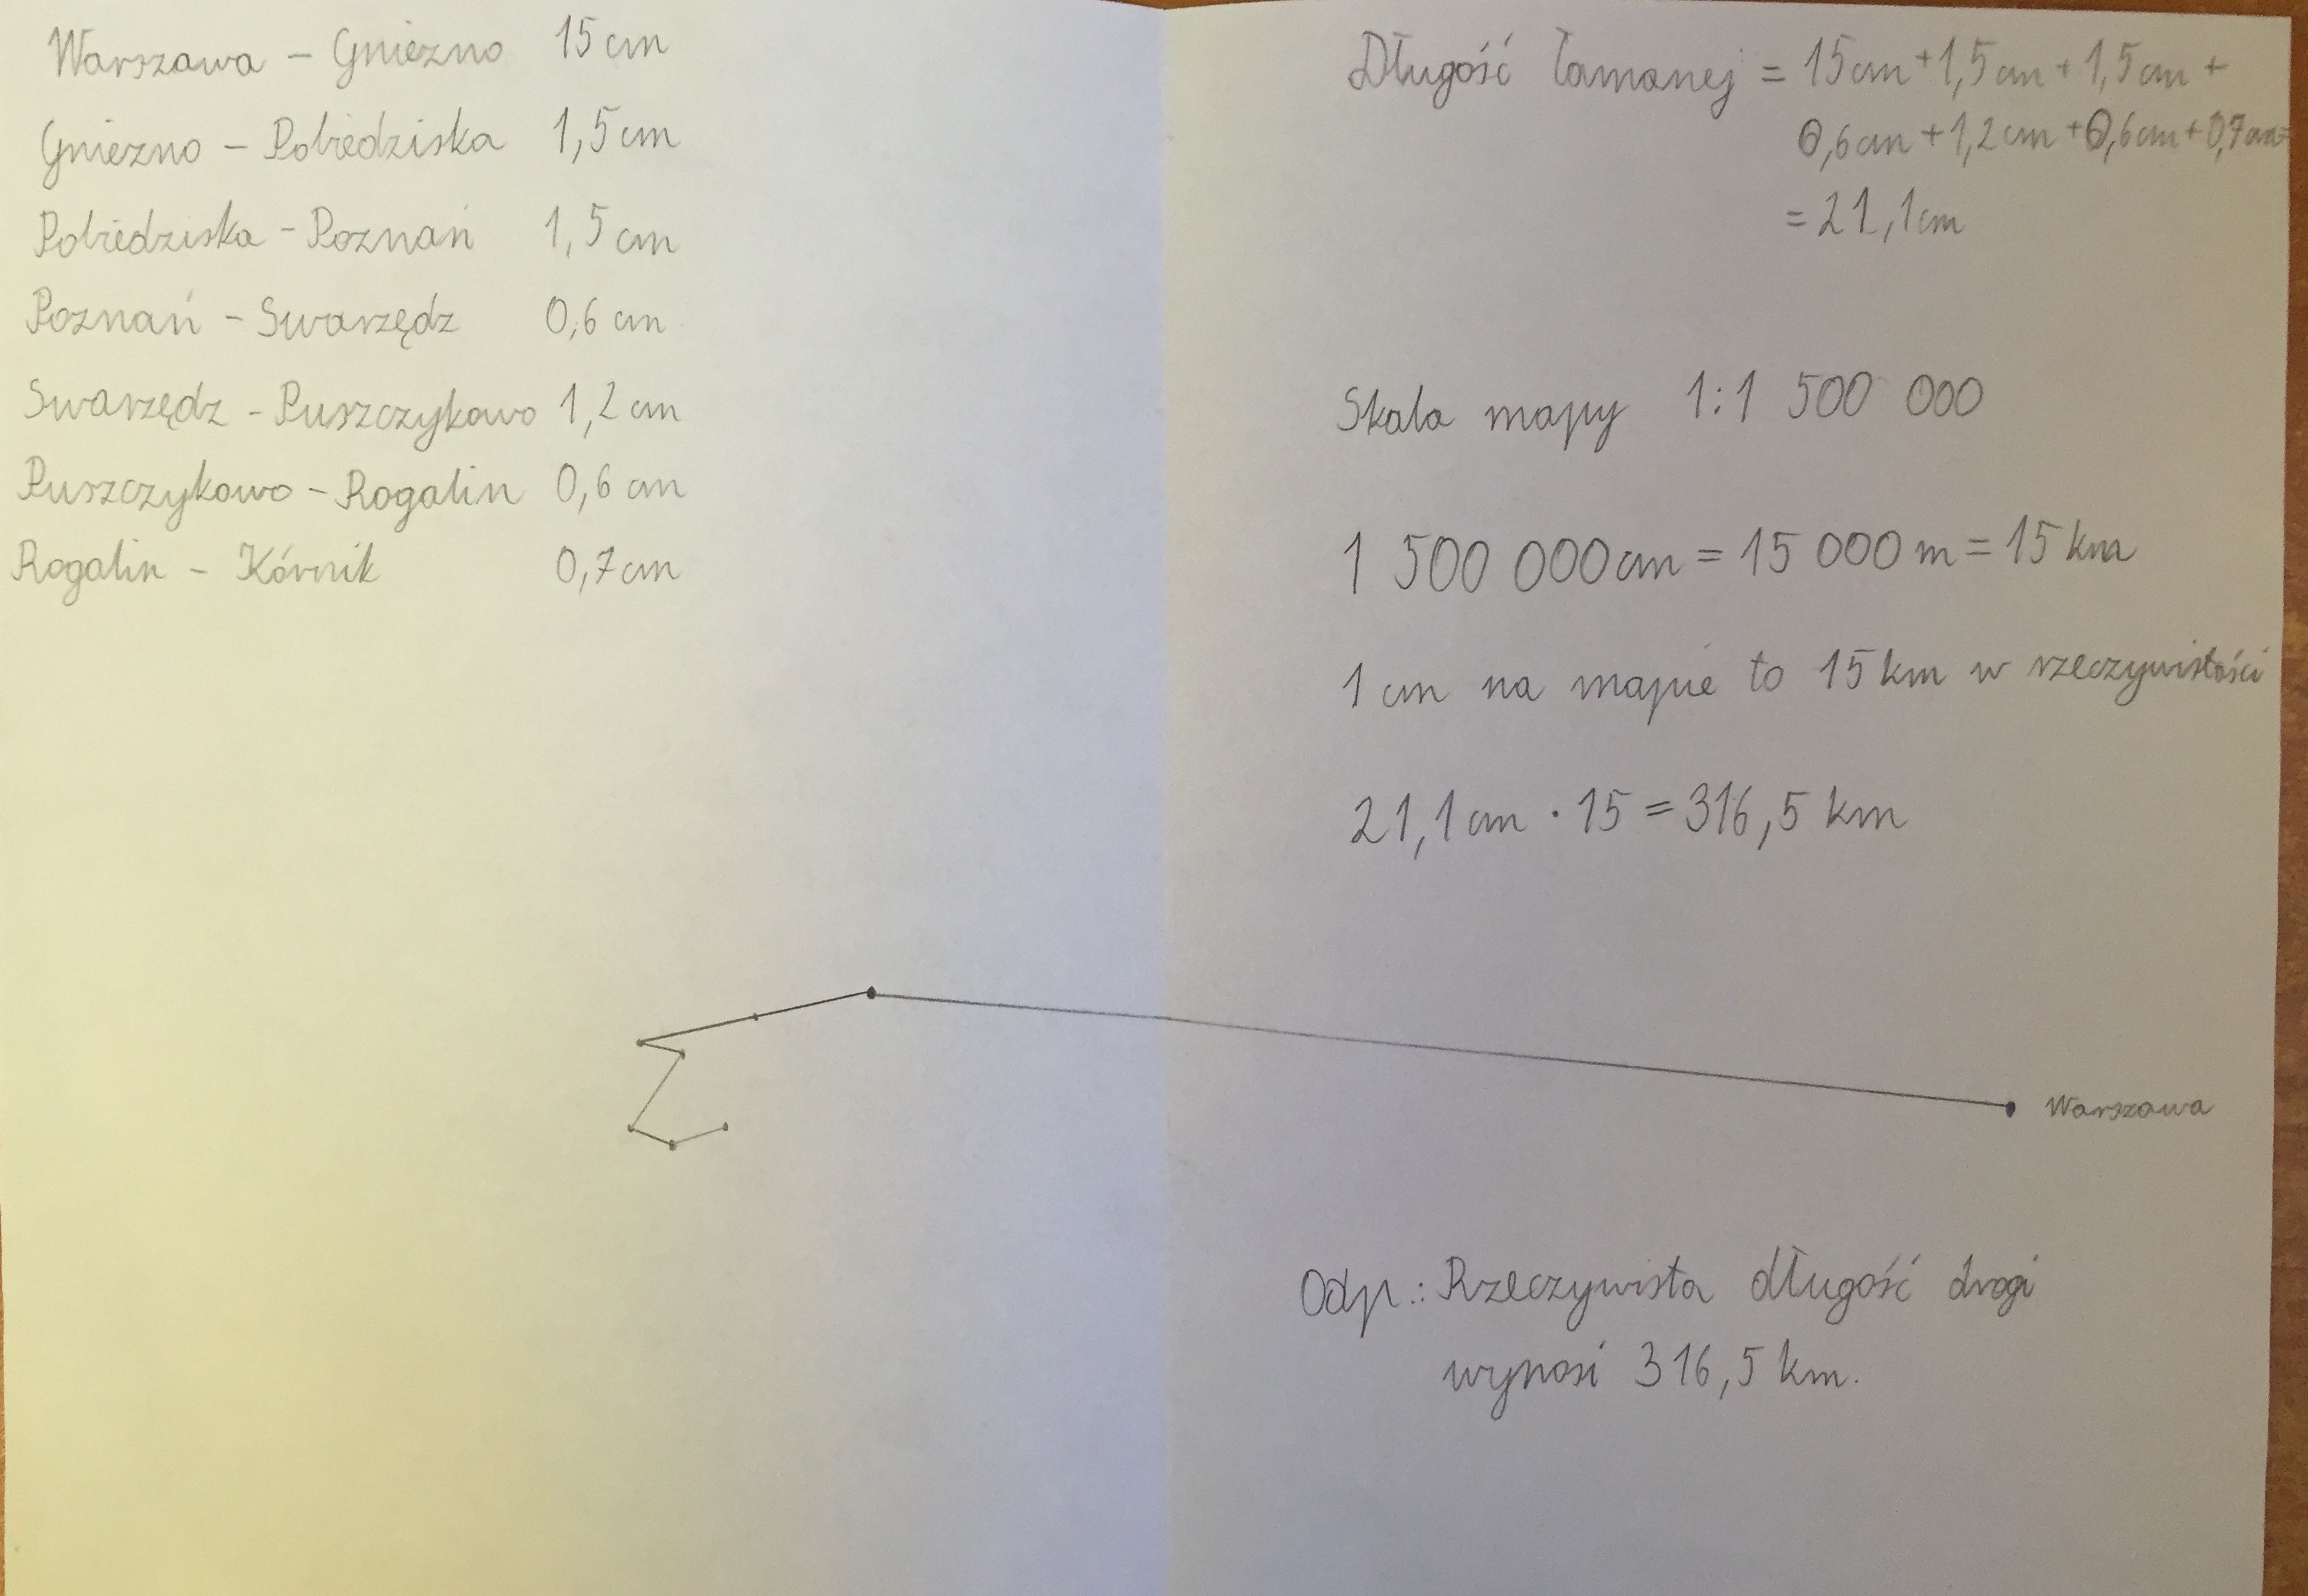 Warszawa - Gniezno 15 cm
Gniezno - Pobiedziska 1,5 cm
Pobiedziska - Poznań 1,5 cm
Poznań - Swarzędz 0,6 cm
Swarzędz - Puszczykowo 1,2 cm
Puszczykowo - Rogalin 0,6 cm
Rogalin - Kórnik 0,7 cm
Długość łamanej = 15 cm + 1,5 cm + 1,5 cm +
0,6 cm + 1,2 cm + 0,6 cm + 0,7 cm =
= 21,1 cm
Skala mapy 1:1 500 000
1 500 000 cm = 15 000 m = 15 km
1 cm na mapie to 15 km w rzeczywistości
21,1 cm · 15 = 316,5 km
Warszawa
Odp.: Rzeczywista długość drogi
wynosi 316,5 km.